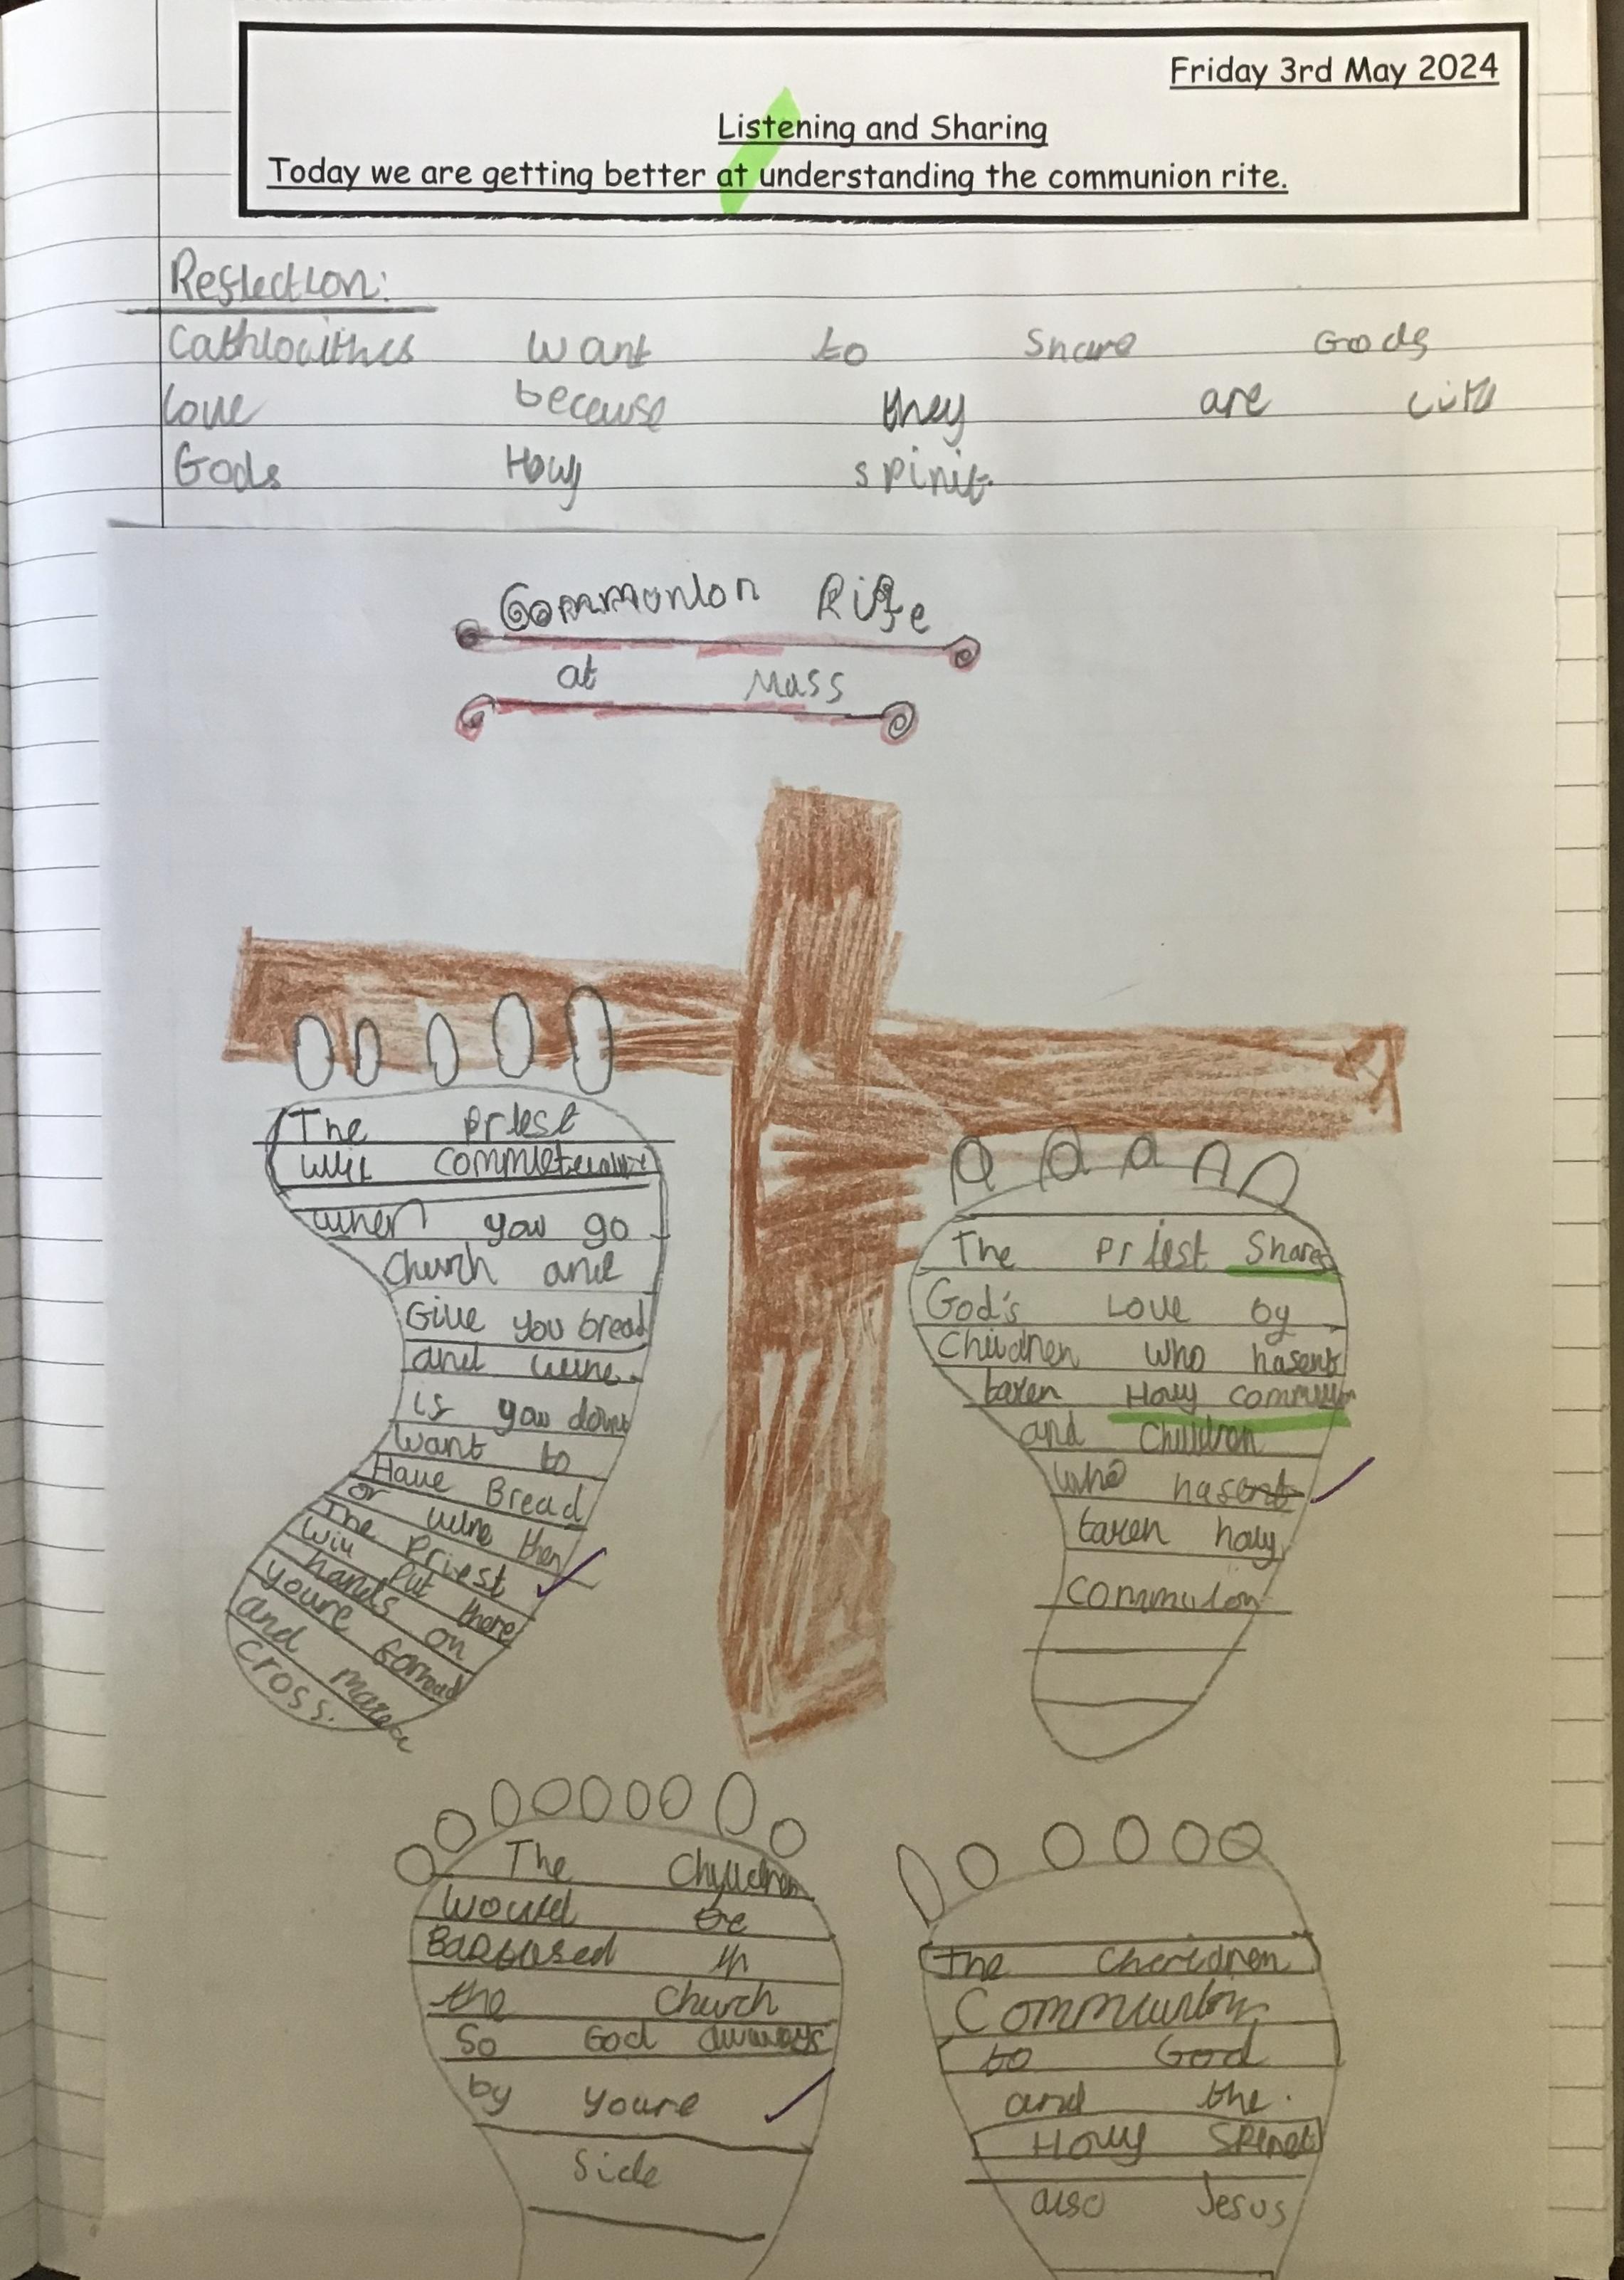 Friday 3rd May 2024
Listening and Sharing
Today we are getting better at understanding the communion rite.
Reflection:
Cathlowithcs want to Share Gods
love because they are with
Gods Holy spirit.
Communion Rite
at Mass
The Priest
will
when you go
Church and
Give you bread
and wine.
if you dont
want to
Have Bread
or wine then
The Priest
will put there
hands on
youre
and make a
cross.
The Priest Shares
God's Love by
Children who hasent
taken Holy
and Children
who hasent
taken holy
commuion
The
would be
in
the Church
So God always
by youre
Side
The
Communion
to God
and the
Holy
also Jesus